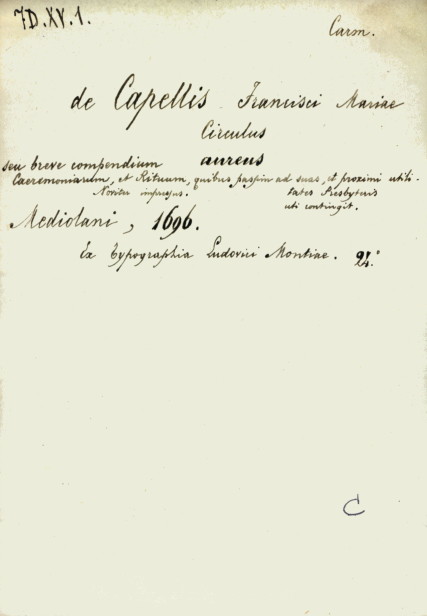 7D.XV.1.
Carm.
de Capellis Francisci Mariae
Circulus
aureus
seu breve compendium
Caeremoniarum, et Rituum, quibus passim ad suas, et proximi utili-
tates Presbyteris
uti contingit.
Noviter impressus.
Mediolani, 1696.
Ex typographia Ludovici Montiae. 24.°
C